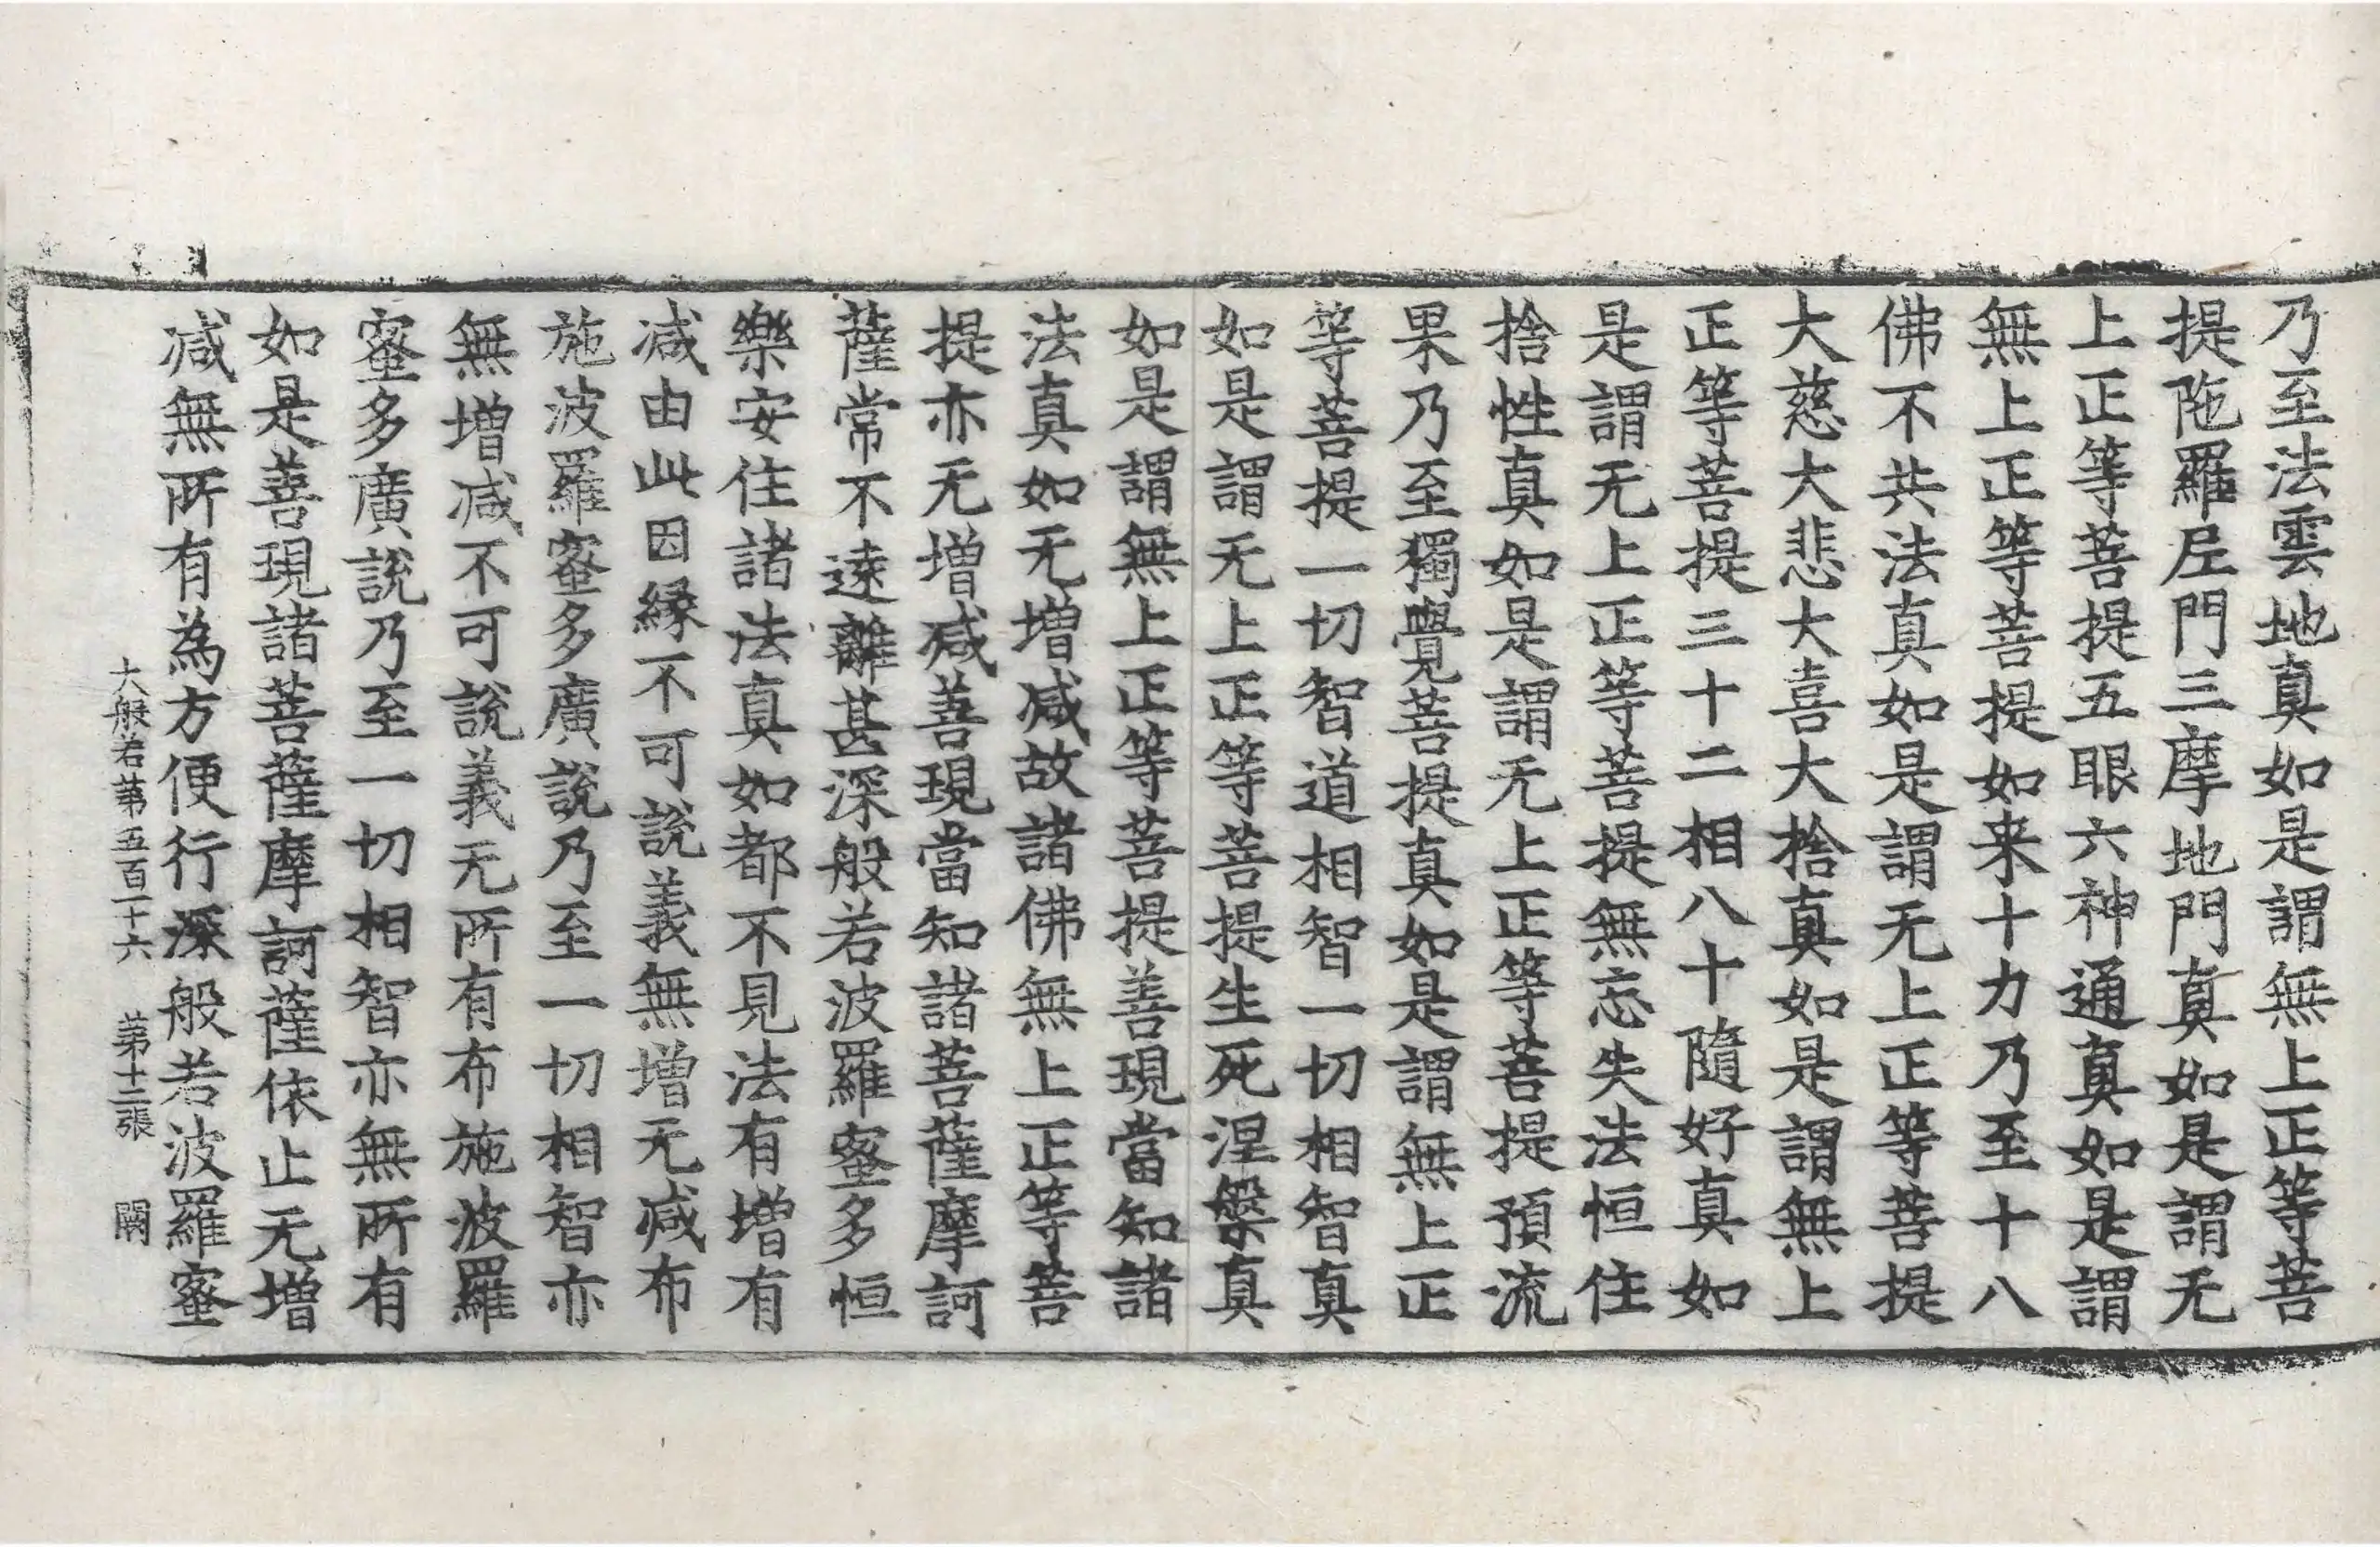 乃至法雲地真如是謂無上正等菩
提陁羅尼門三摩地門真如是謂无
上正等菩提五眼六神通真如是謂
無上正等菩提如来十力乃至十八
佛不共法真如是謂无上正等菩提
大慈大悲大喜大捨真如是謂無上
正等菩提三十二相八十隨好真如
是謂无上正等菩提無忘失法恒住
捨性真如是謂无上正等菩提預流
果乃至獨覺菩提真如是謂無上正
等菩提一切智道相智一切相智真
如是謂无上正等菩提生死涅槃真
如是謂無上正等菩提善現當知諸
法真如无增减故諸佛無上正等菩
提亦无增减善現當知諸菩薩摩訶
薩常不遠離甚深般若波羅蜜多恒
樂安住諸法真如都不見法有增有
减由此因緣不可說義無增无减布
施波羅蜜多廣說乃至一切相智亦
無增减不可說義无所有布施波羅
蜜多廣說乃至一切相智亦無所有
如是善現諸菩薩摩訶薩依止无增
减無所有為方便行深般若波羅蜜
大般若第五百一十六 第十二張 闕